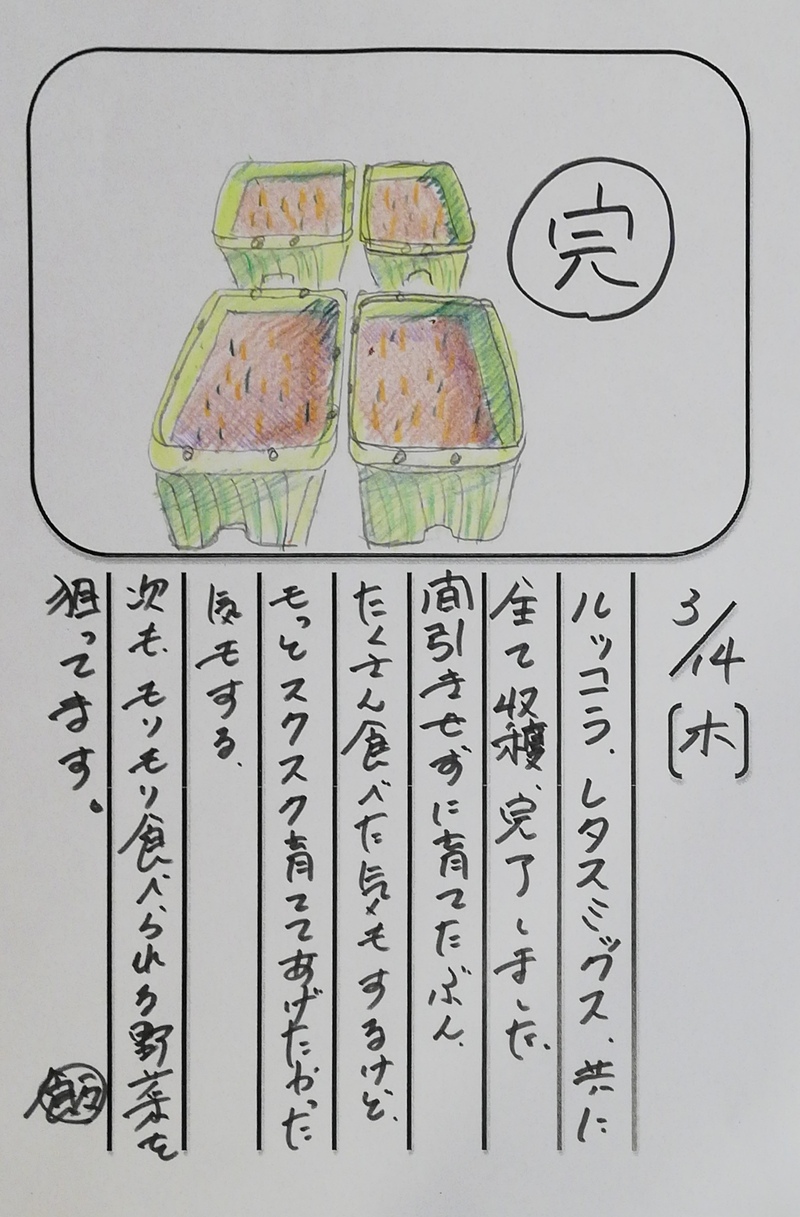 完
3/14
[木]
ルッコラ、レタスミックス、共に
全て収穫、完了しました。
間引きせずに育てたぶん、
たくさん食べた気もするけど、
もっとスクスク育ててあげたかった
気もする。
次も、モリモリ食べられる野菜を
狙ってます。
飯